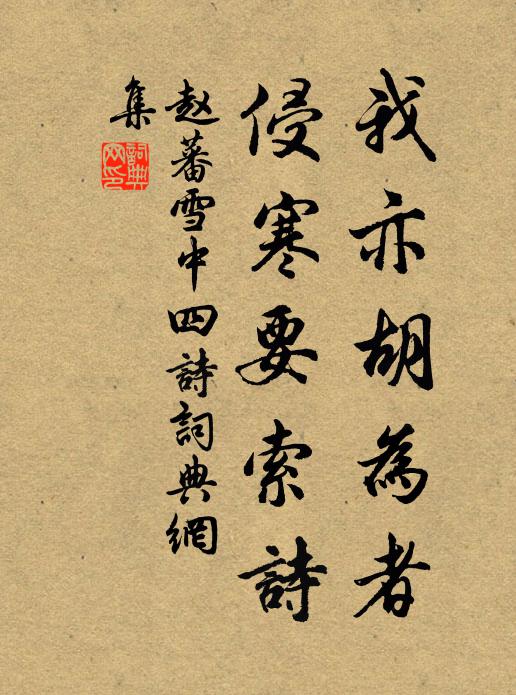 我亦胡為者
侵寒要索詩
赵蕃雪中四詩詞典網
集
詞典網印